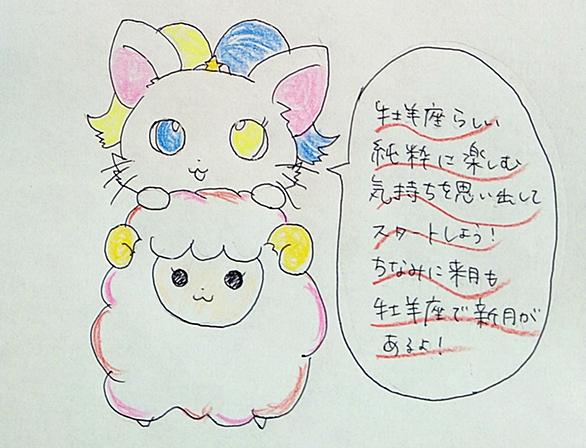 牡羊座らしい
純粋に楽しむ
気持ちを思い出して
スタートしよう!
ちなみに来月も
牡羊座で新月が
あるよ!